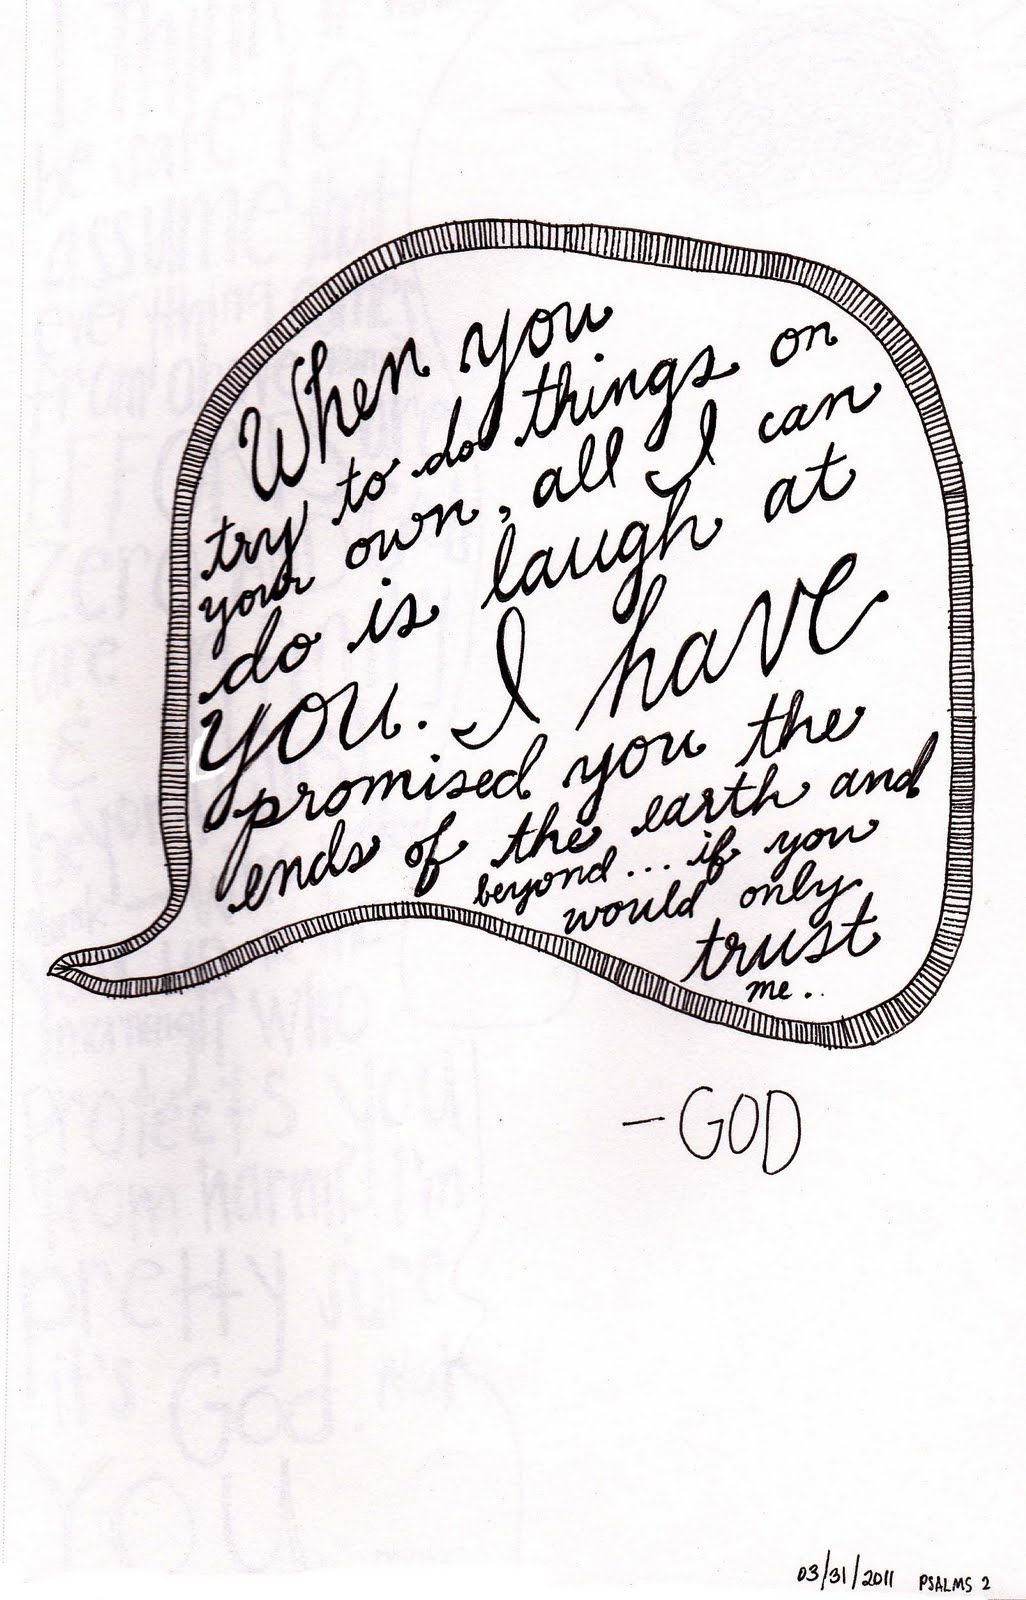 When you
try to do things on
your own, all I can
do is laugh at
you. I have
promised you the
ends of the earth and
beyond... if you
would only
trust
me..
- GOD
03/31/2011 PSALMS 2